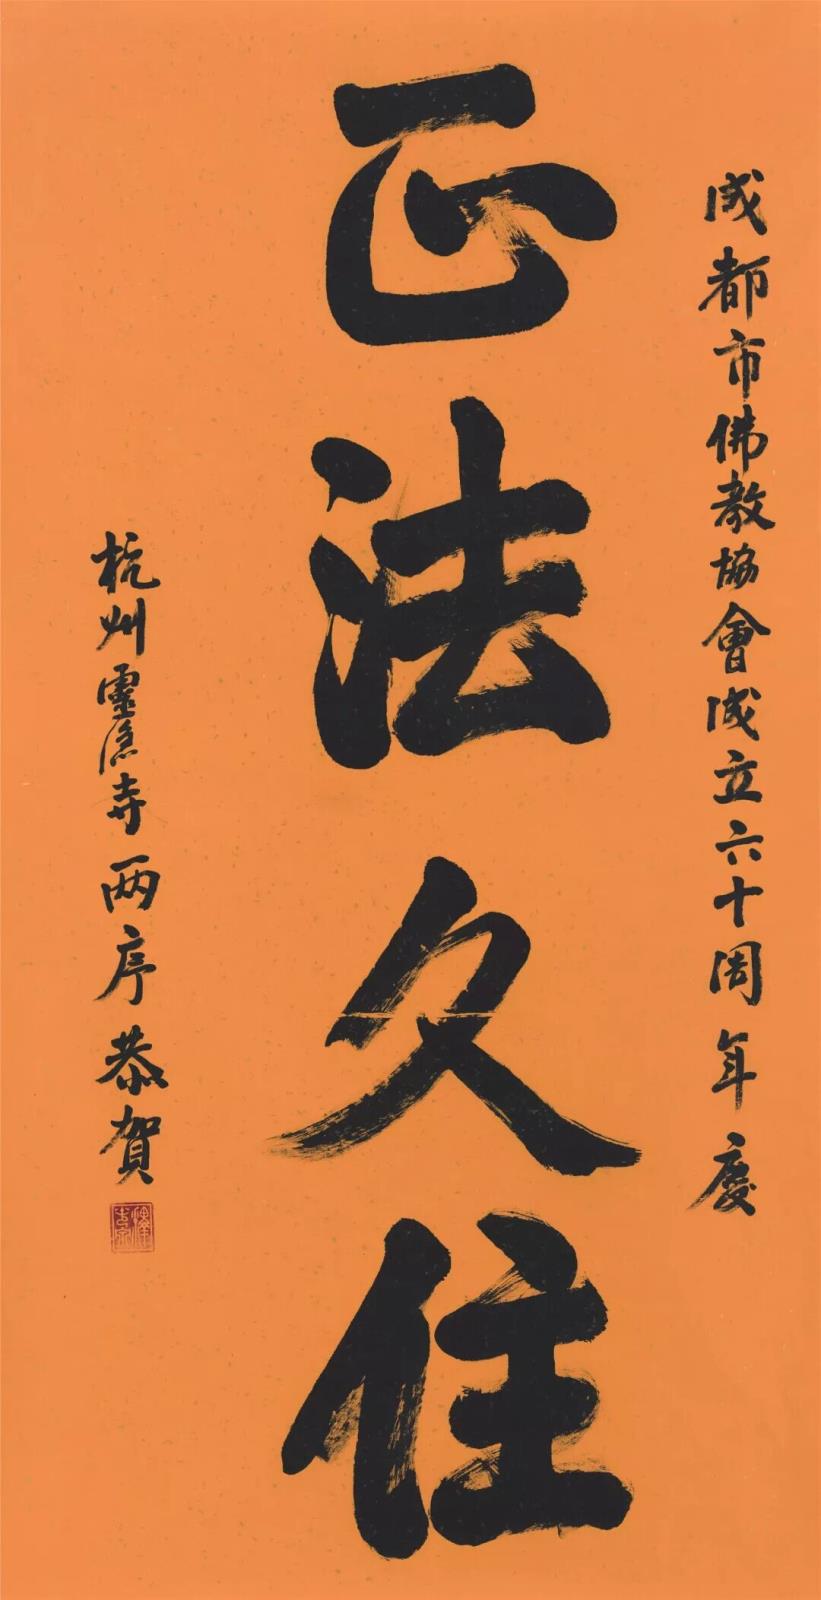 成都市佛教協會成立六十周年慶
正法久住
杭州靈隱寺两序恭賀